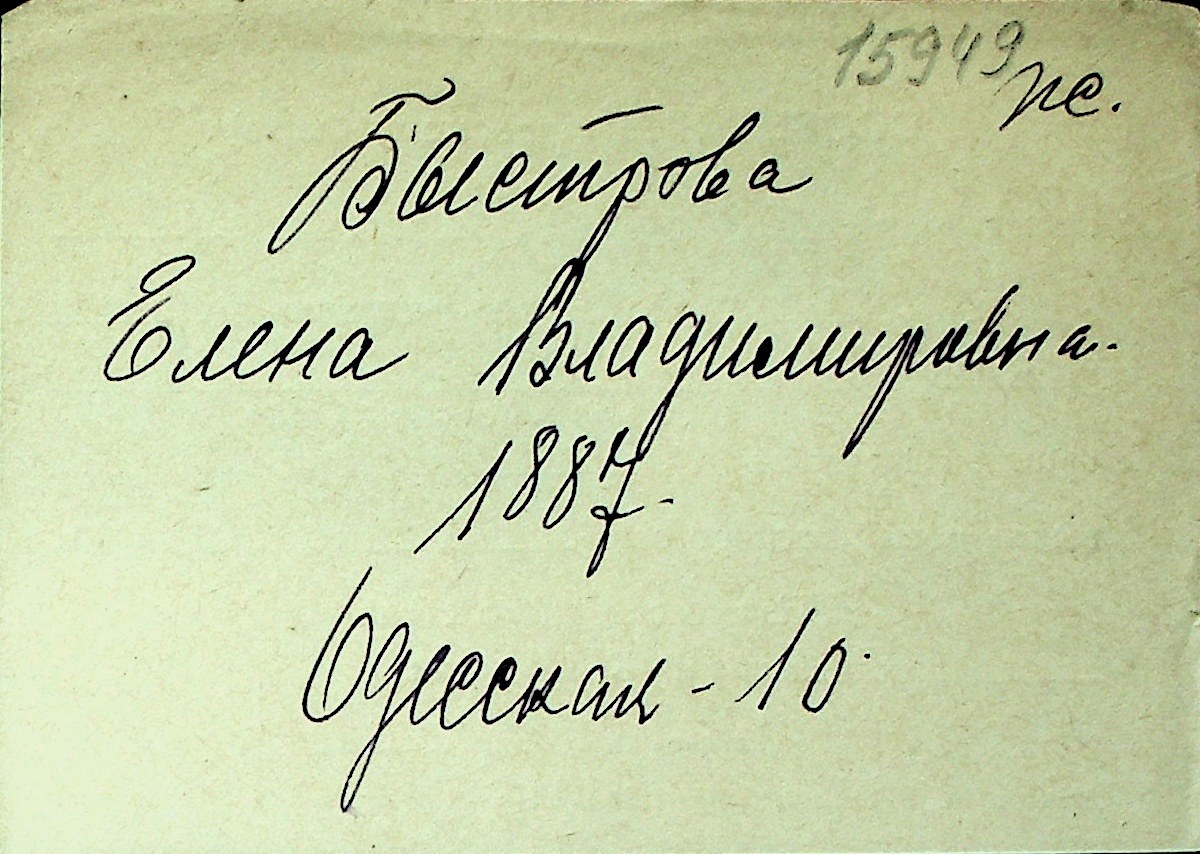 15949
пс.
Быстрова
Елена Владимировна.
1887.
Одесская - 10.